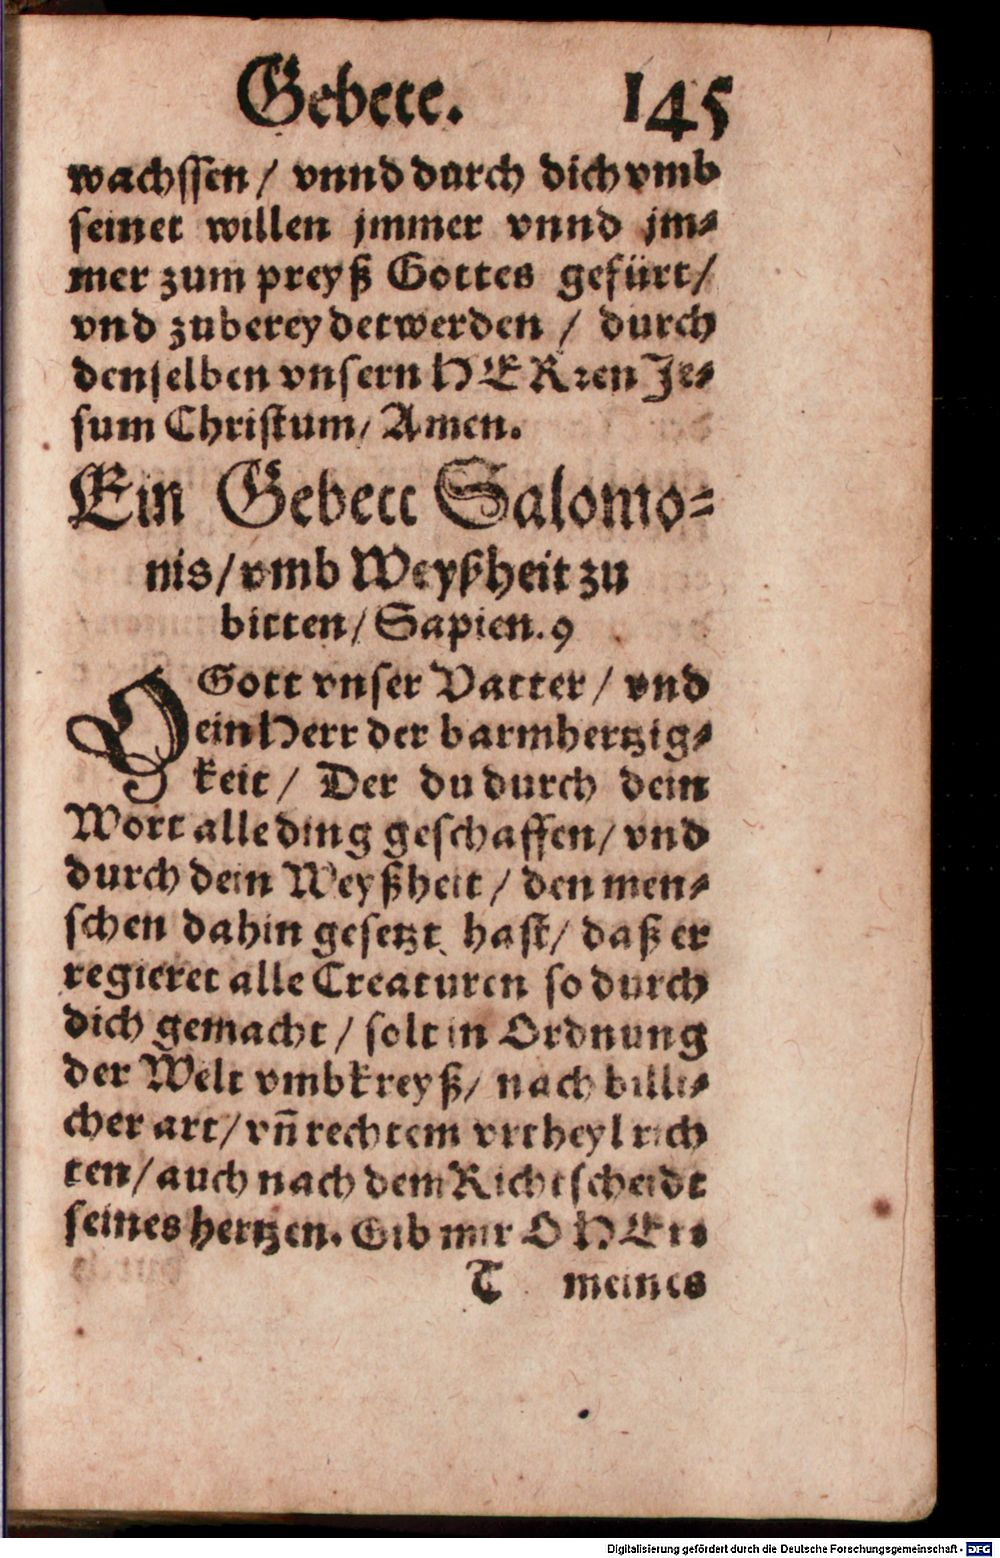 Gebete. 145
wachssen / vnnd durch dich vmb
seinet willen jmmer vnnd jm-
mer zum preyß Gottes gefürt /
vnd zubereydet werden / durch
denselben vnsern HERren Je-
sum Christum / Amen.
Ein Gebett Salomo-
nis / vmb Weyßheit zu
bitten / Sapien. 9
O Gott vnser Vatter / vnd
ein Herr der barmhertzig-
keit / Der du durch dein
Wort alle ding geschaffen / vnd
durch dein Weyßheit / den men-
schen dahin gesetzt hast / daß er
regieret alle Creaturen so durch
dich gemacht / solt in Ordnung
der Welt vmbkreyß / nach billi-
cher art / vn̄ rechtem vrtheyl rich
ten / auch nach dem Richtscheidt
seines hertzen. Gib mir O HErr
T meines
Digitalisierung gefördert durch die Deutsche Forschungsgemeinschaft - DFG